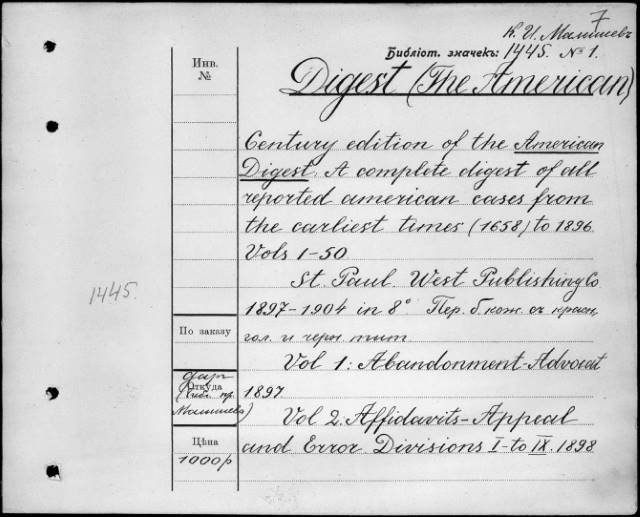 7
К. И. Малышевъ
Библіот. значекъ: 1445. № 1.
Инв.
№
Digest (The American)
Century edition of the American
Digest. A complete digest of all
reported american cases from
the earliest times (1658) to 1896.
Vols 1-50
St. Paul. West Publishing Co
1897-1904 in 8° Пер. б. кож. съ красн.
гол. и черн. тит.
1445.
По заказу
Vol 1: Abandonment-Advocat
1897
Откуда
дар
Малышева)
Vol 2. Affidavits-Appeal
and Error Divisions I-to IX. 1898
Цѣна
1000р